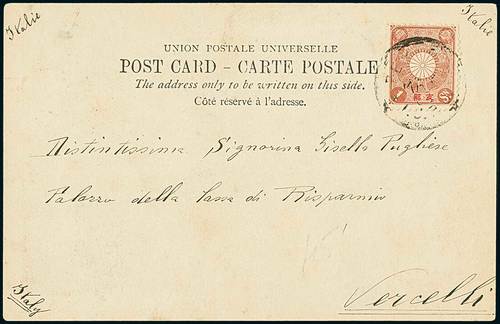 Italie
Italie
UNION POSTALE UNIVERSELLE
POST CARD – CARTE POSTALE
The address only to be written on this side.
Côté réservé à l'adresse.
Distintissima Signorina Gisella Pugliese
Palazzo della Cassa di Risparmio
Italy
Vercelli